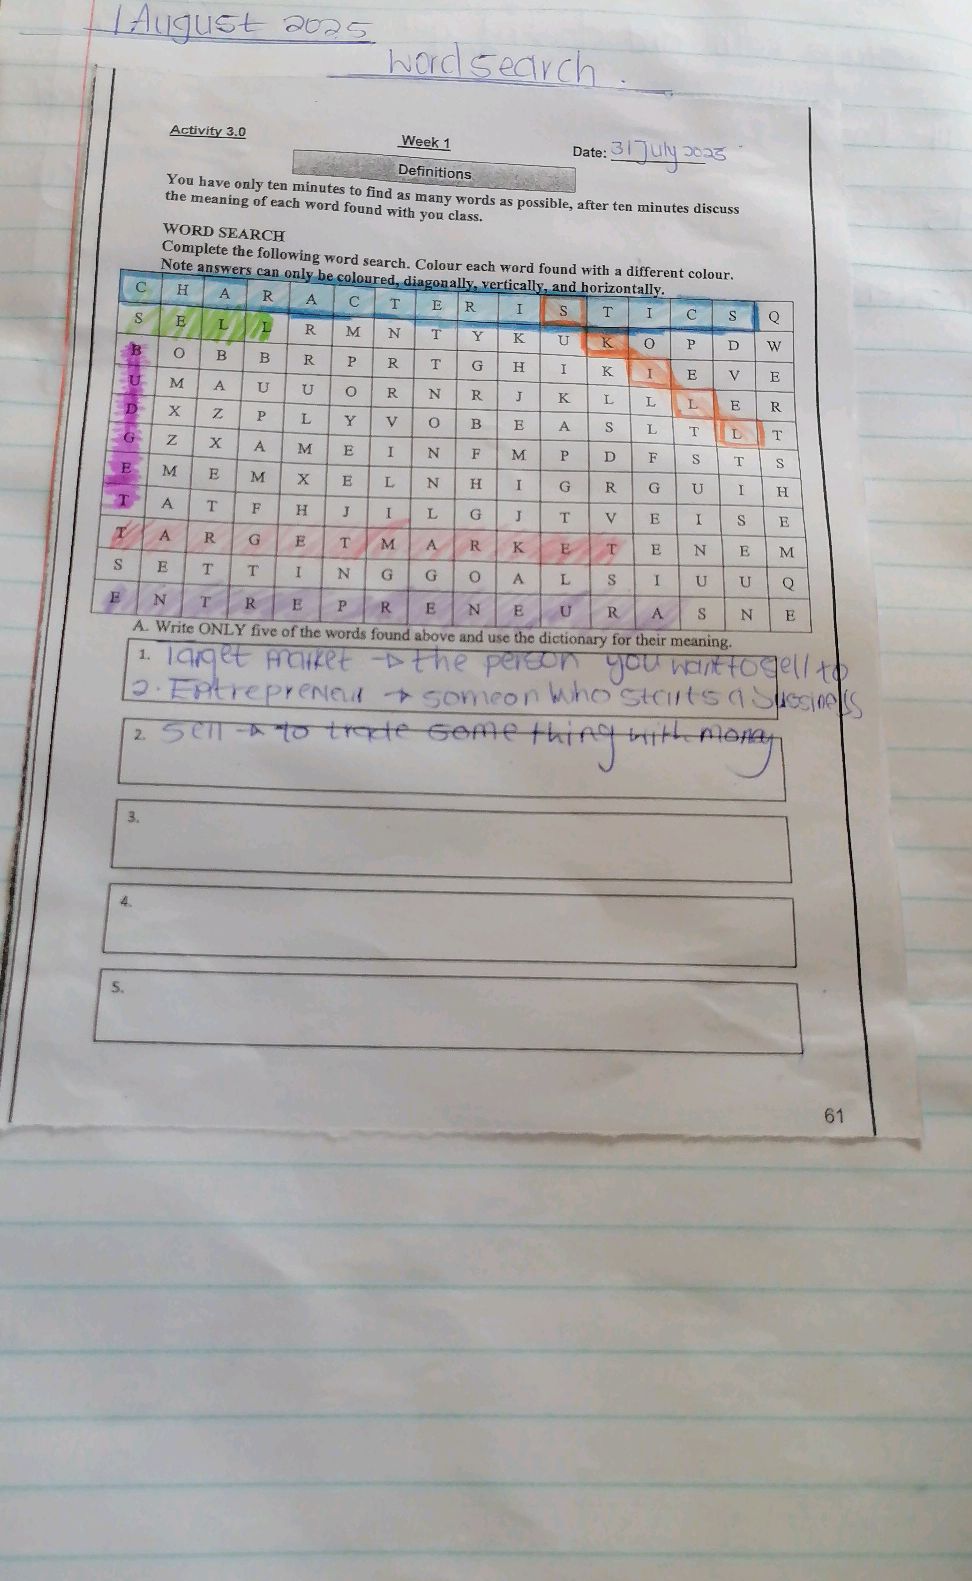 1 August 2025
Word search.
Activity 3.0
Week 1
Date: 31 July 2025
Definitions
You have only ten minutes to find as many words as possible, after ten minutes discuss
the meaning of each word found with you class.
WORD SEARCH
Complete the following word search. Colour each word found with a different colour.
Note answers can only be coloured, diagonally, vertically, and horizontally.
C H A R A C T E R I S T I C S Q
S E L L R M N T Y K U K O P D W
B O B B R P R T G H I K I E V E
U M A U U O R N R J K L L L E R
D X Z P L Y V O B E A S L T L T
G Z X A M E I N F M P D F S T S
E M E M X E L N H I G R G U I H
T A T F H J I L G J T V E I S E
T A R G E T M A R K E T E N E M
S E T T I N G G O A L S I U U Q
E N T R E P R E N E U R A S N E
A. Write ONLY five of the words found above and use the dictionary for their meaning.
1. Target market → the person you want to sell to
2. Entrepreneur → someon who starts a bussiness
2. Sell → to trade some thing with money
3.
4.
5.
61